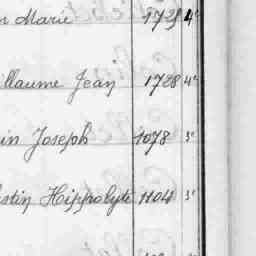 Marie 1721 4e
illaume Jean 1728 4e
in Joseph 1078 3e
stin Hippolyte 1104 3e